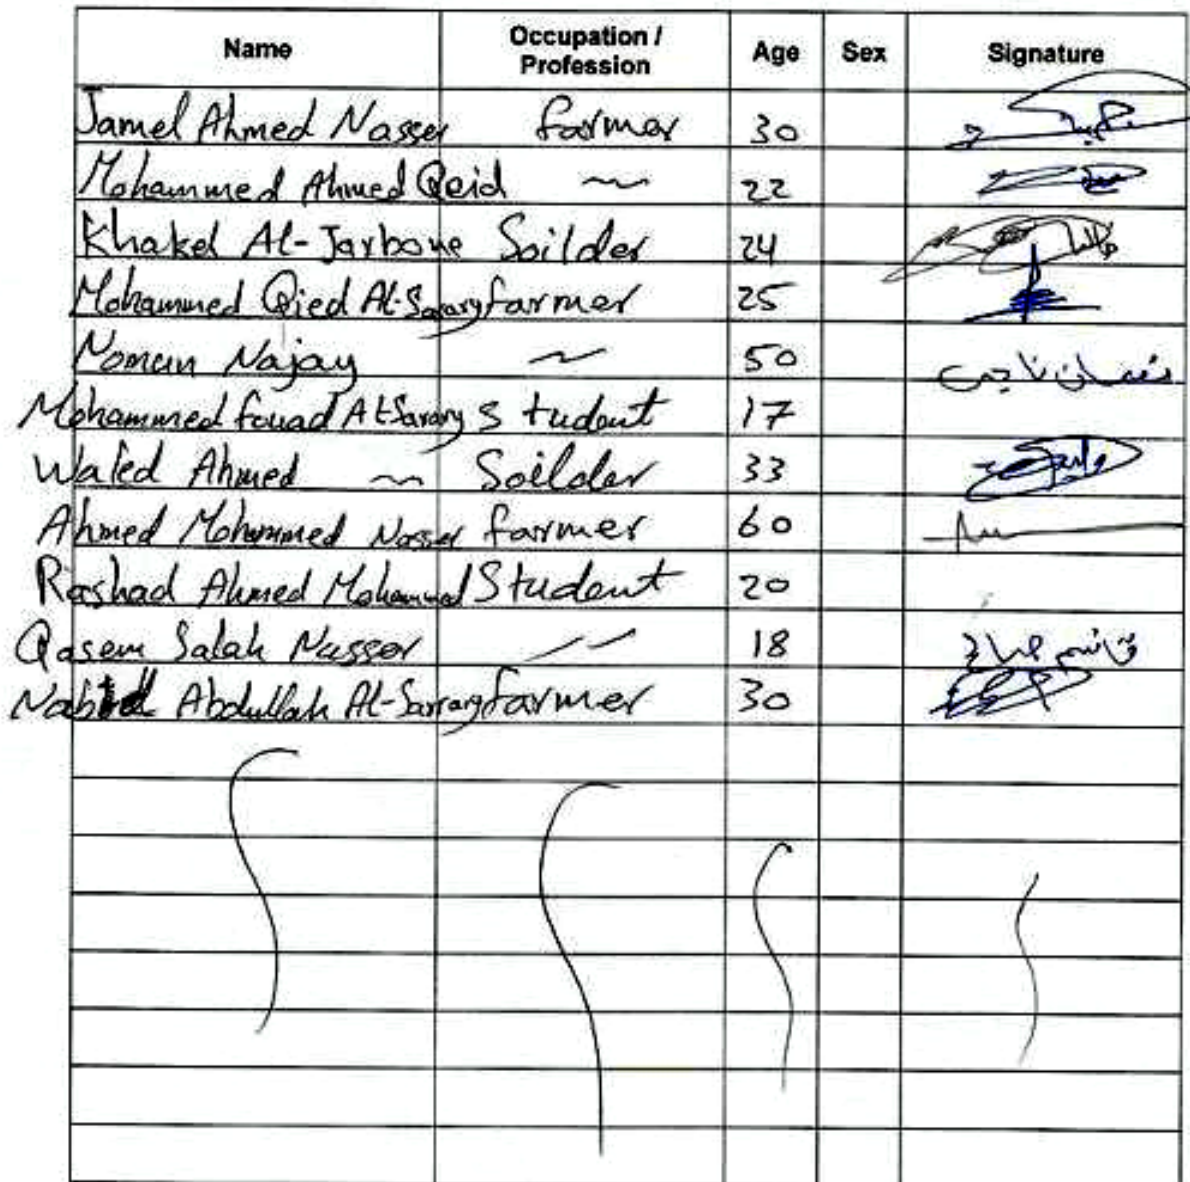 Name Occupation / Profession Age Sex Signature
Jamel Ahmed Nasser farmer 30
Mohammed Ahmed Qeid ~ 22
Khakel Al-Jarbone Soilder 24
Mohammed Qied Al-Sarary farmer 25
Noman Najay ~ 50 نعمان ناجي
Mohammed fouad Al-Sarary Student 17
Waled Ahmed ~ Soilder 33
Ahmed Mohammed Nasser farmer 60
Rashad Ahmed Mohammed Student 20
Qasem Salah Nasser // 18 قاسم صلاح
Abdullah Al-Sarrary farmer 30